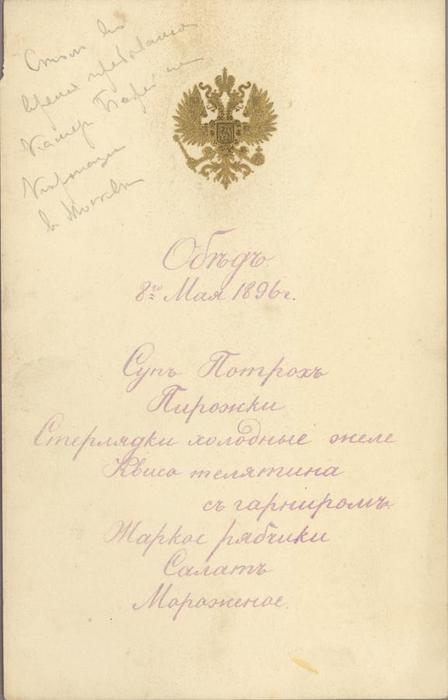 Столъ во
время пребыванія
Камер
в Москве
Обѣдъ
8го Мая 1896 г.
Супъ Потрохъ
Пирожки
Стерлядки холодные желе
телятина
съ гарниромъ
Жаркое рябчики
Салатъ
Мороженое.